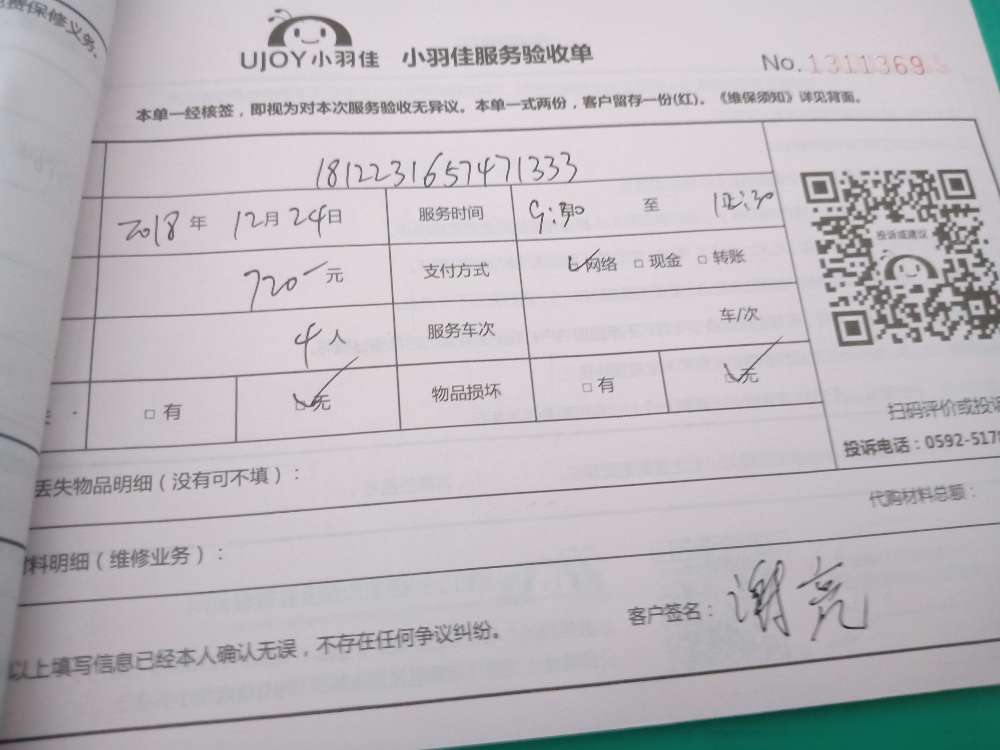 费保修义务.
UJOY小羽佳 小羽佳服务验收单
No. 1311369
本单一经核签，即视为对本次服务验收无异议。本单一式两份，客户留存一份(红)。《维保须知》详见背面。
1812231657471333
2018年 12月24日 服务时间 9:30 至 12:30
投诉或建议
720 元 支付方式 网络 □ 现金 □ 转账
4人 服务车次 车/次
□ 有 □ 无 物品损坏 □ 有 □ 无
扫码评价或投诉
投诉电话：0592-5178
丢失物品明细（没有可不填）：
代购材料总额：
料明细（维修业务）：
客户签名：谢亮
以上填写信息已经本人确认无误，不存在任何争议纠纷。